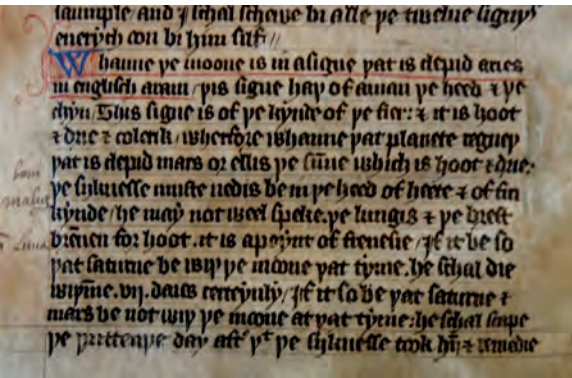 saumple/ and J schal schewe bi alle þe twelue signys
euerych oon bi him silf//
Whanne þe moone is in a signe þat is clepid aries
in englisch a ram/ þis signe haþ of a man þe heed & þe
chyn/ This signe is of þe kynde of þe fier: & it is hoot
& drie & colerik/ wherfore whanne þat planete regneþ
þat is clepid mars or ellis þe sūne which is hoot & drie:
þe sijknesse muste nedis be in þe heed of heete & of
kynde/ he may not weel speke. þe lungis & þe brest
brēnen for hoot. it is a poynt of frenesie/ Jf it be so
þat saturne be wiþ þe moone þat tyme. he schal die
wiþīne .vij. daies certeynly/ Jf it so be þat saturne &
mars be not wiþ þe moone at þat tyme: he schal scape
þe day aftʳ þᵗ þe sijknesse took hī & remedie